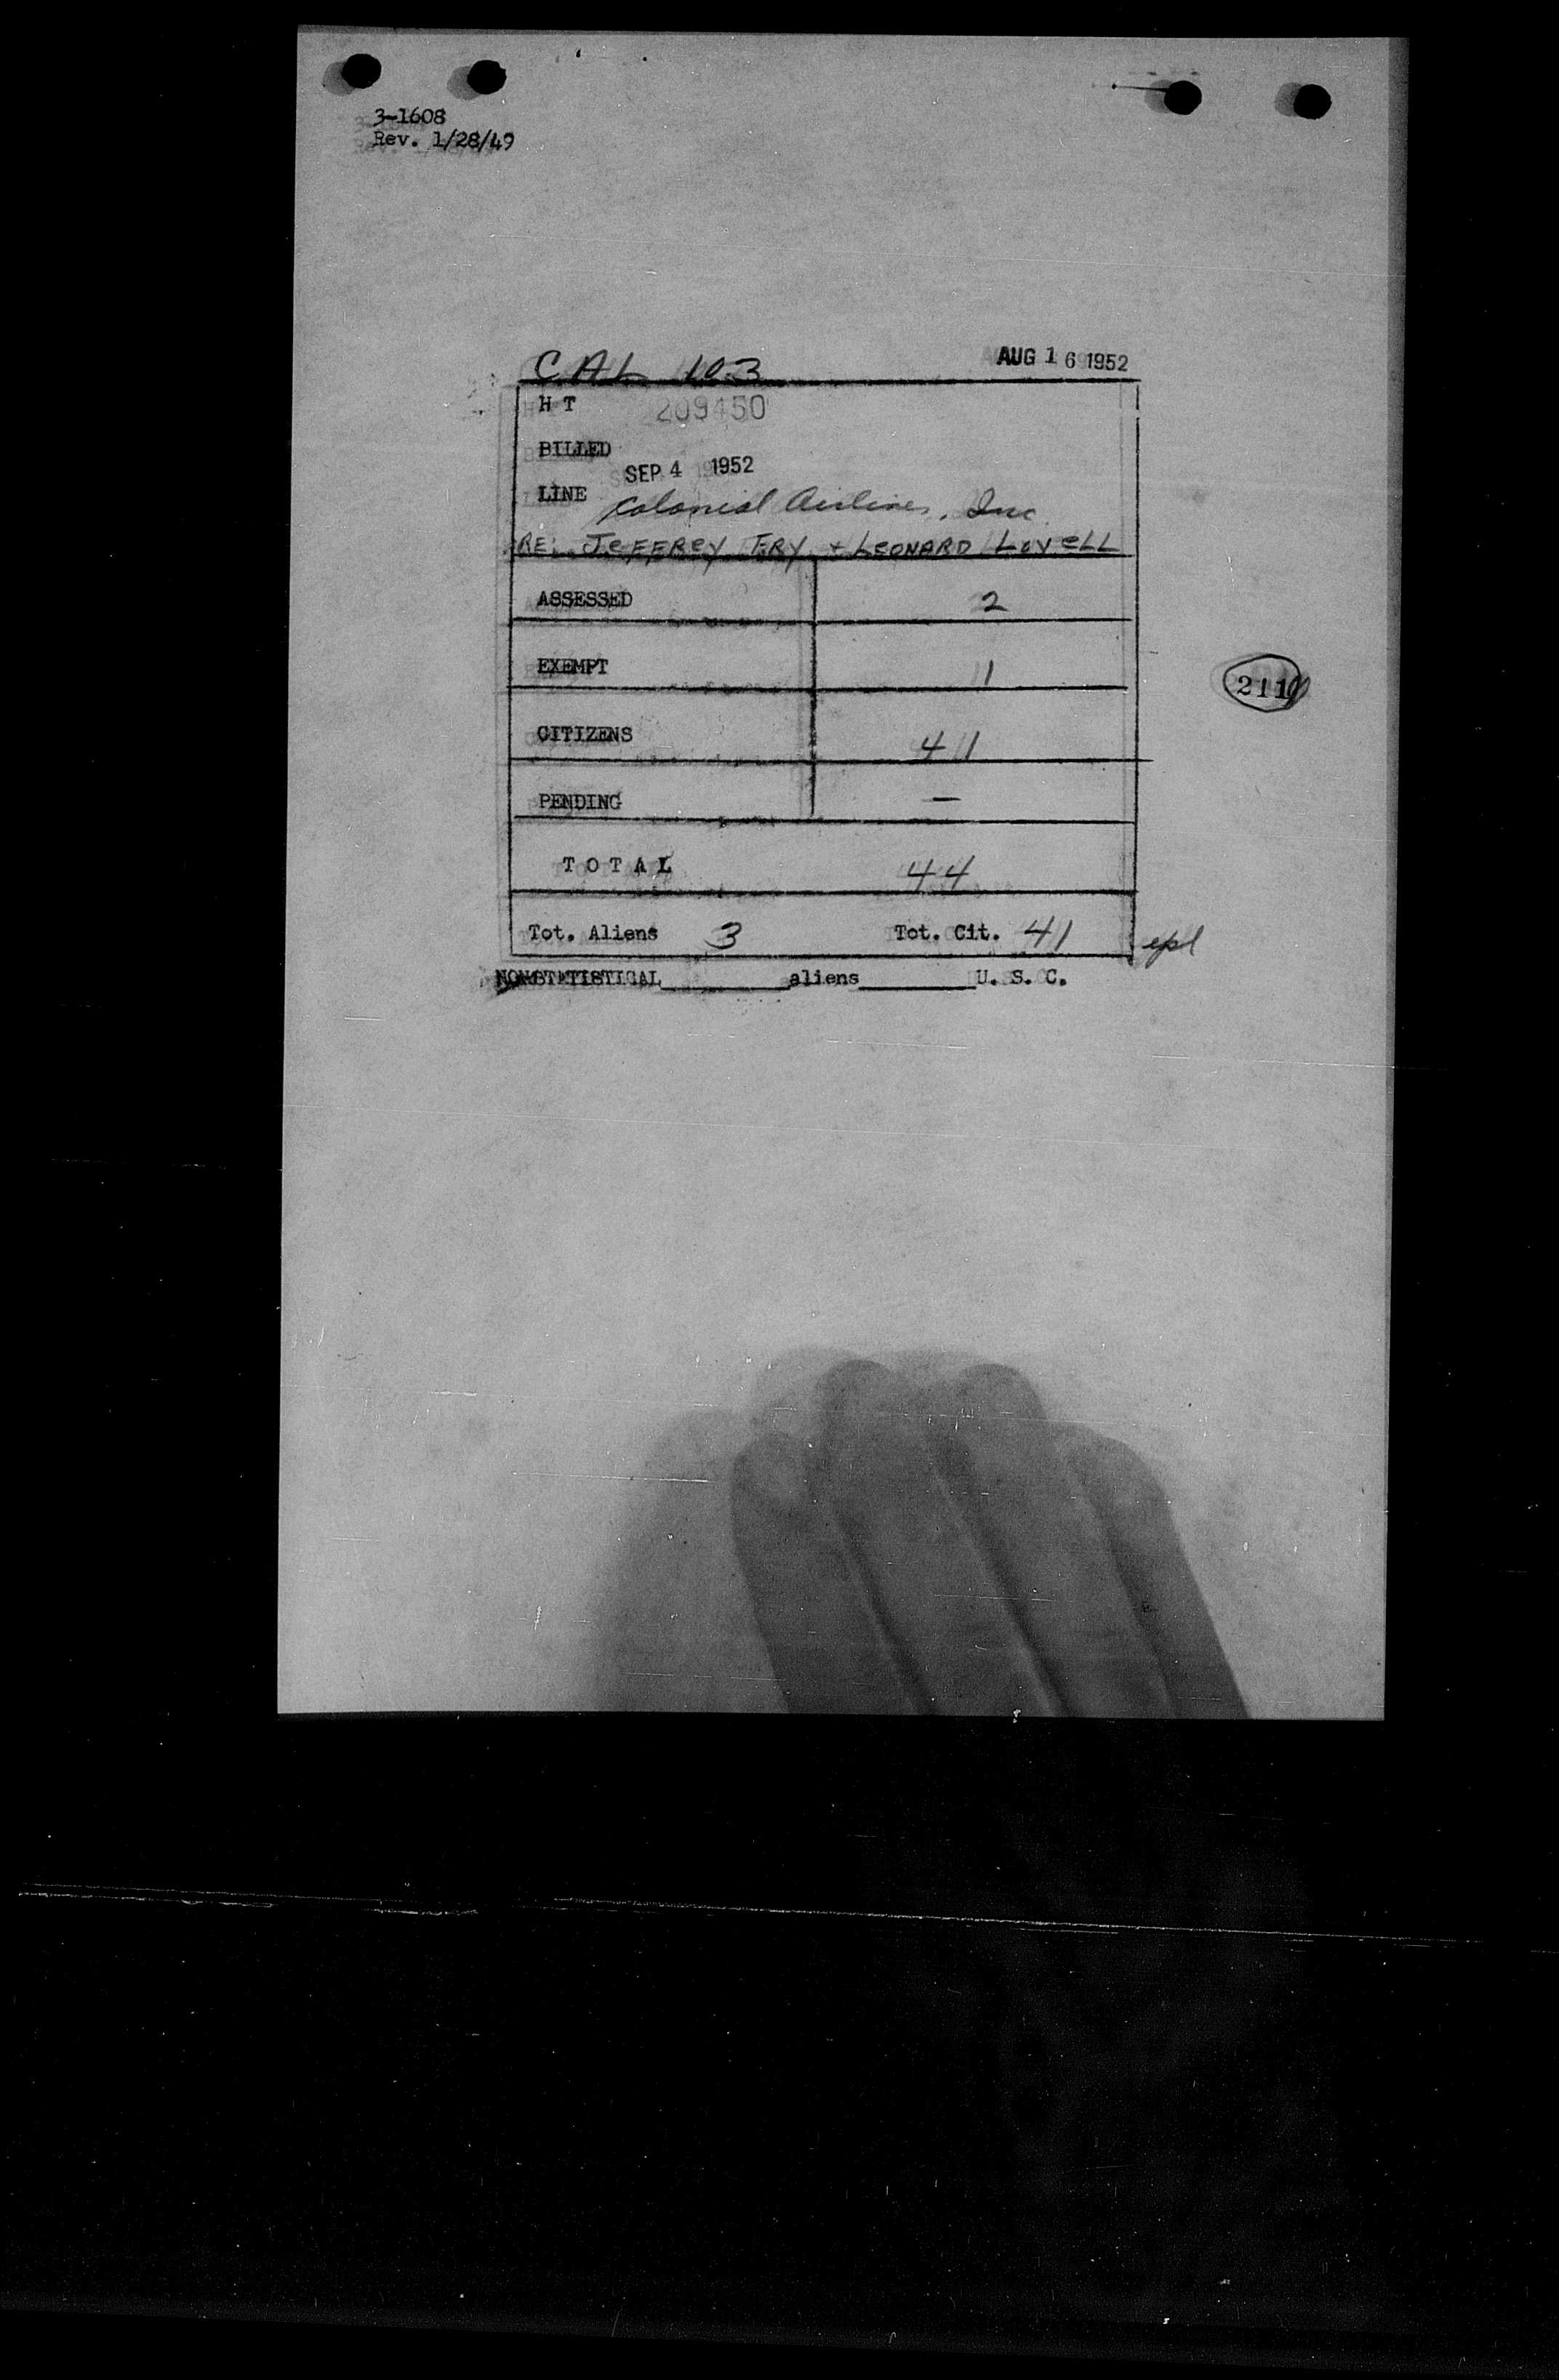 3-1608
Rev. 1/28/49
CAL 103 AUG 16 1952
H T 209450
BILLED
SEP 4 1952
LINE Colonial Airlines, Inc.
RE: JEFFREY FRY + LEONARD LOVELL
ASSESSED 2
EXEMPT 1
CITIZENS 41
PENDING —
TOTAL 44
Tot. Aliens 3 Tot. Cit. 41
NONSTATISTICAL________aliens________U. S. C.